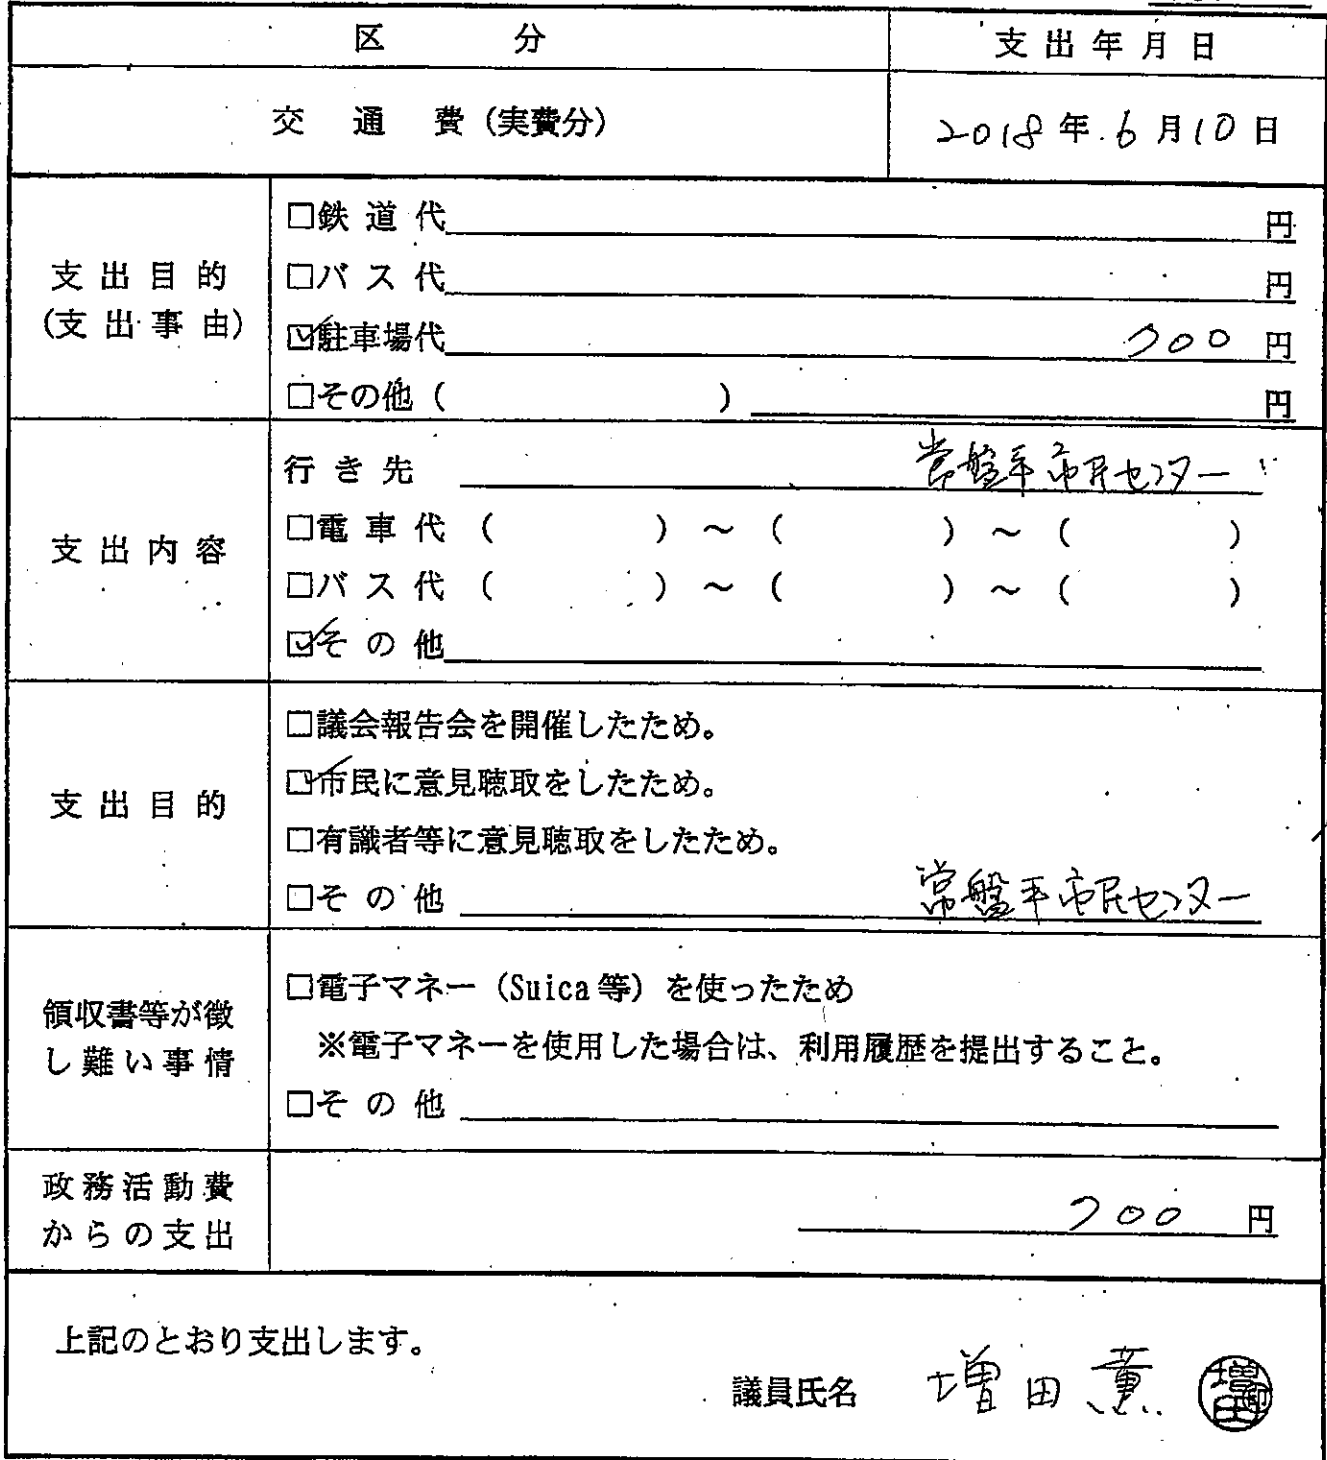 区 分 支出年月日
交 通 費（実費分） 2018年6月10日
支出目的
（支出事由）
□鉄道代 円
□バス代 円
☑駐車場代 700円
□その他（ ） 円
支出内容
行き先 常盤平市民センター
□電車代（ ）～（ ）～（ ）
□バス代（ ）～（ ）～（ ）
☑その他
支出目的
□議会報告会を開催したため。
☑市民に意見聴取をしたため。
□有識者等に意見聴取をしたため。
□その他 常盤平市民センター
領収書等が徴
し難い事情
□電子マネー（Suica等）を使ったため
※電子マネーを使用した場合は、利用履歴を提出すること。
□その他
政務活動費
からの支出
700 円
上記のとおり支出します。
議員氏名 増田薫